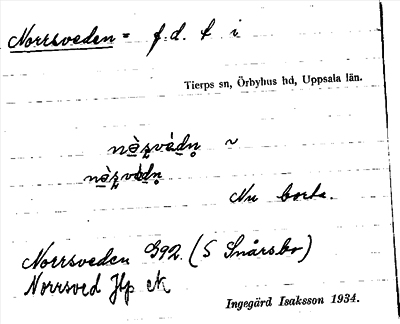 Norrsveden = f. d. t i
Tierps sn, Örbyhus hd, Uppsala län.
Nu borta.
Norrsveden G92. (S Snårsbo)
Norrsved Jtp eK
Ingegärd Isaksson 1934.